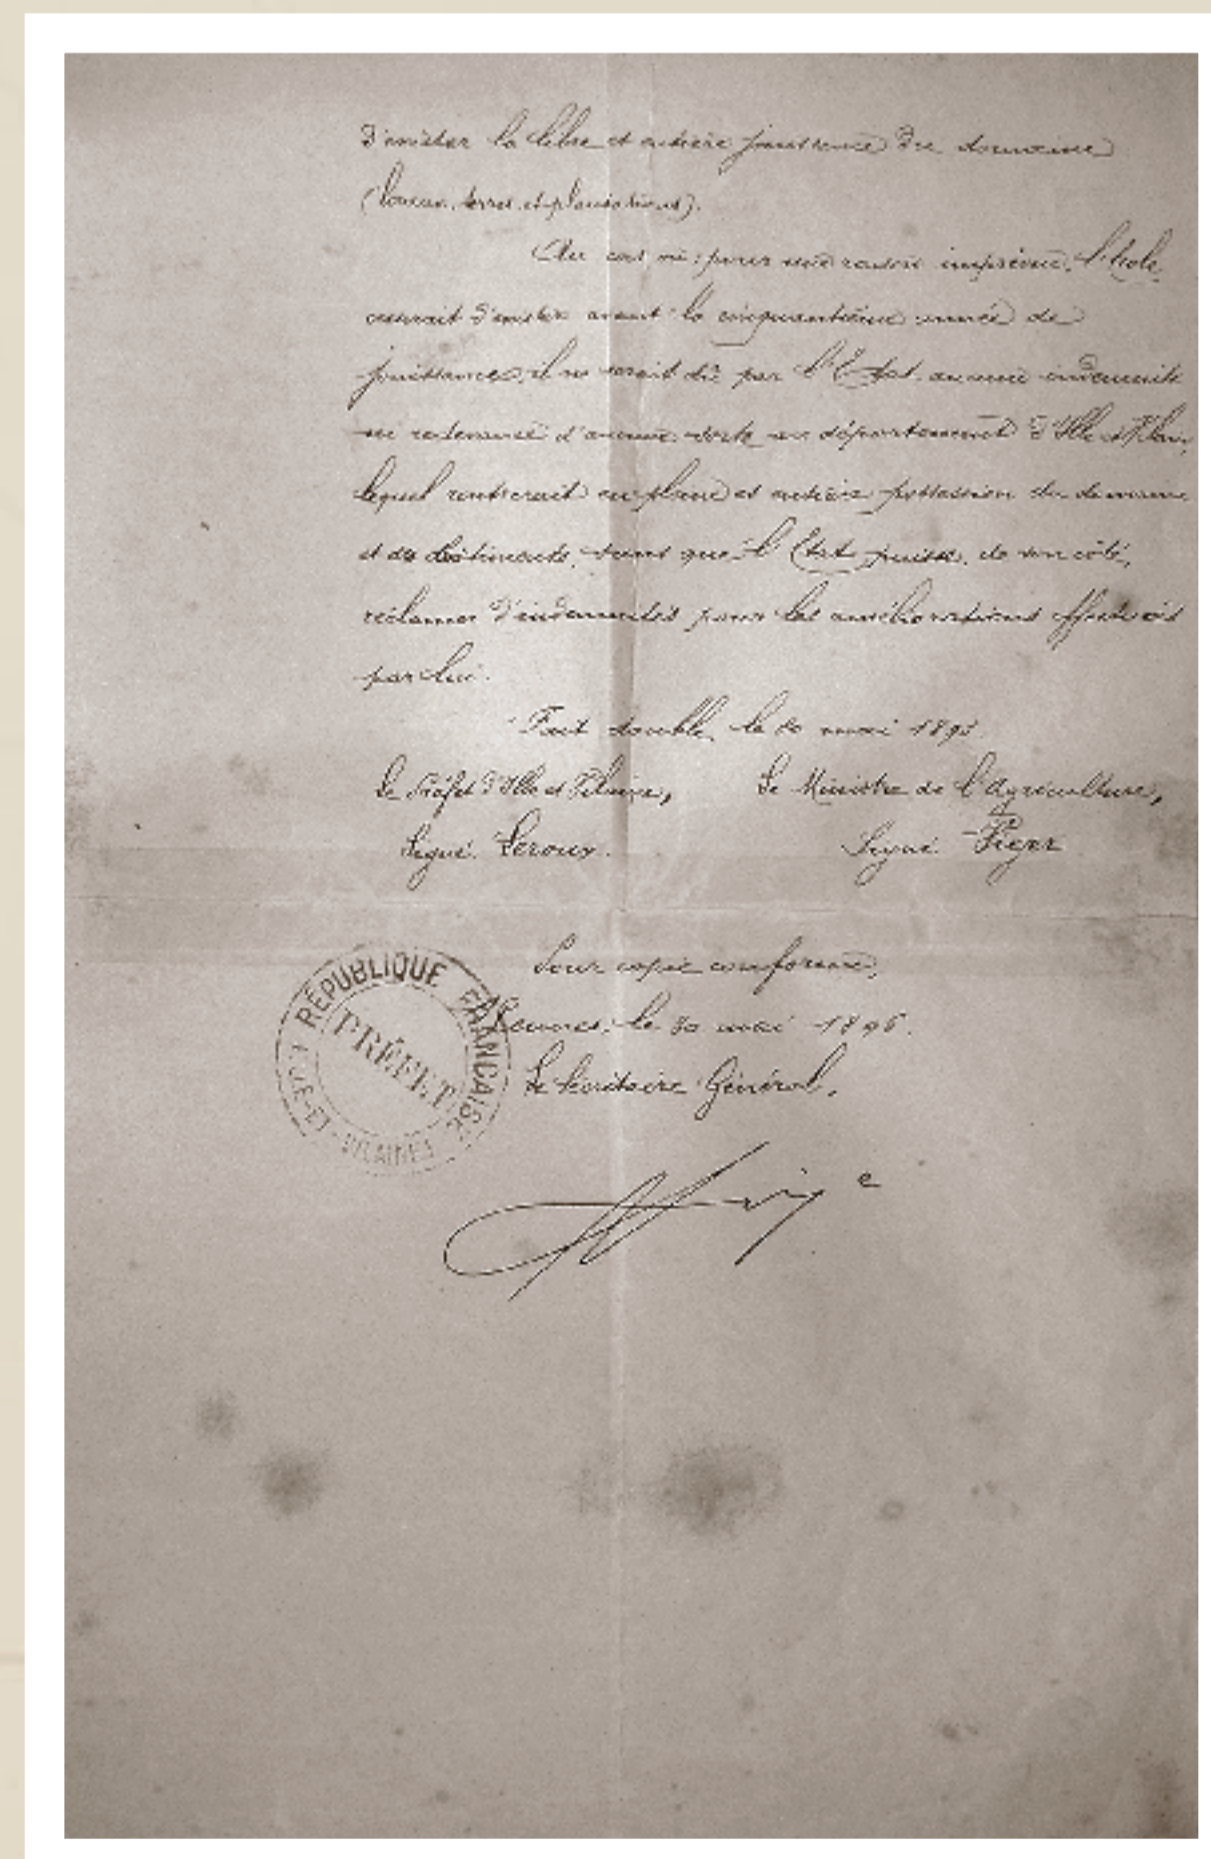 d'exister la libre et entière jouissance du domaine
(locaux, terres et plantations).
Au cas où, pour une raison imprévue, l'École
cesserait d'exister avant la cinquantième année de
jouissance, il ne serait dû par l'Etat aucune indemnité
ni redevance d'aucune sorte au département d'Ille et Vilaine,
lequel rentrerait en pleine et entière possession du domaine
et des bâtiments, sans que l'Etat puisse, de son côté,
réclamer d'indemnités pour les améliorations effectuées
par lui.
Fait double, le mai
Le Préfet d'Ille et Vilaine, Le Ministre de l'Agriculture,
Signé Leroux. Signé
Pour copie conforme,
Rennes, le 30 mai
Le Secrétaire Général,
RÉPUBLIQUE FRANÇAISE
PRÉFET
ILLE-ET-VILAINE